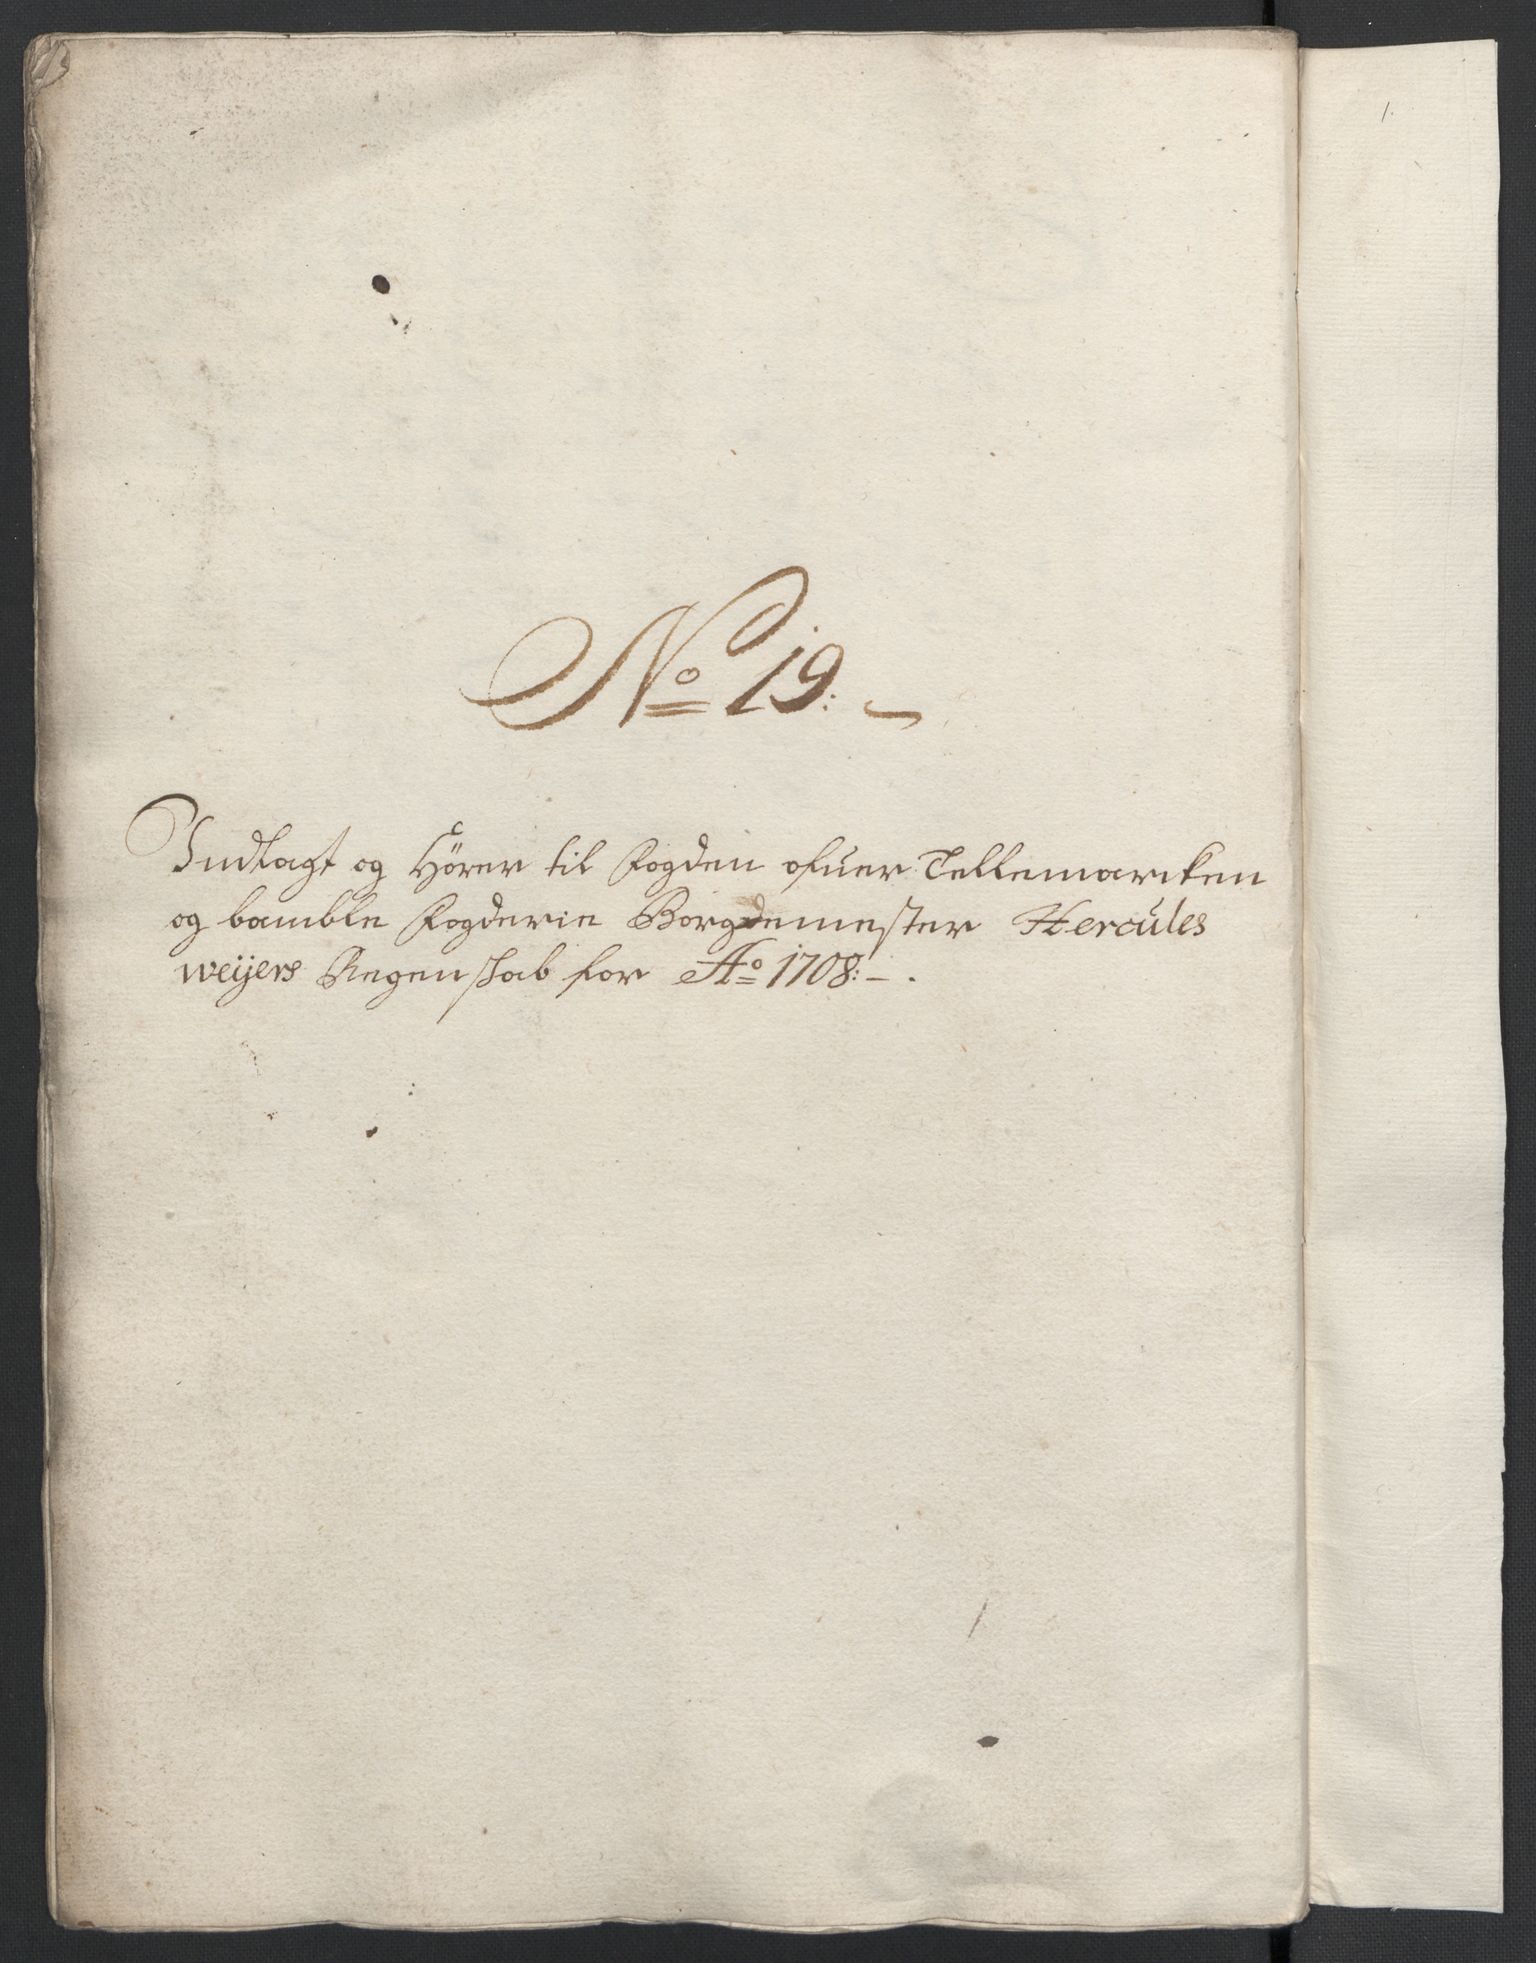 No 19:
Indlagt og Hører til Fogden ofuer Tellemarcken
og bamble Fogderie Borgemester Hercules
weÿers Regenskab for Ao 1708:-.